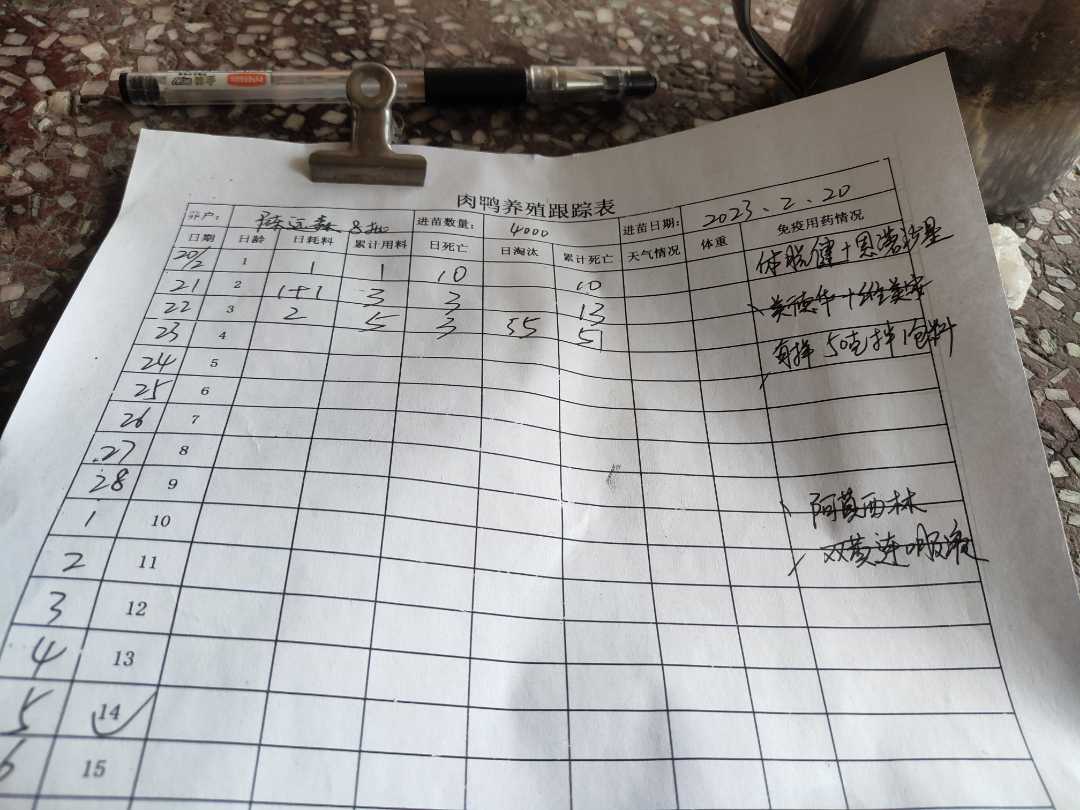 肉鸭养殖跟踪表
养户: 进苗数量: 4000 进苗日期: 2023.2.20
日期 日龄 日耗料 累计用料 日死亡 日淘汰 累计死亡 天气情况 体重 免疫用药情况
20/2 1 1 1 10 10 体肽健+恩诺沙星
21 2 1+1 3 3 13
22 3 2 5 3 35 51
23 4 每拌50克拌1包料
24 5
25 6
26 7
27 8
28 9 阿莫西林
1 10 双黄连口服液
2 11
3 12
4 13
5 14
6 15